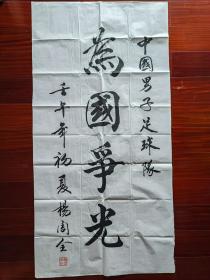 中國男子足球隊
為國爭光
壬午年初夏楊周全